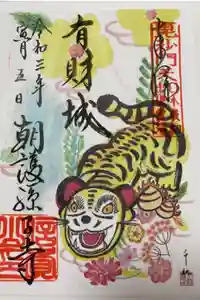 奉拝
毘沙門天
有財城
令和三年
寅月五日
朝護孫子寺